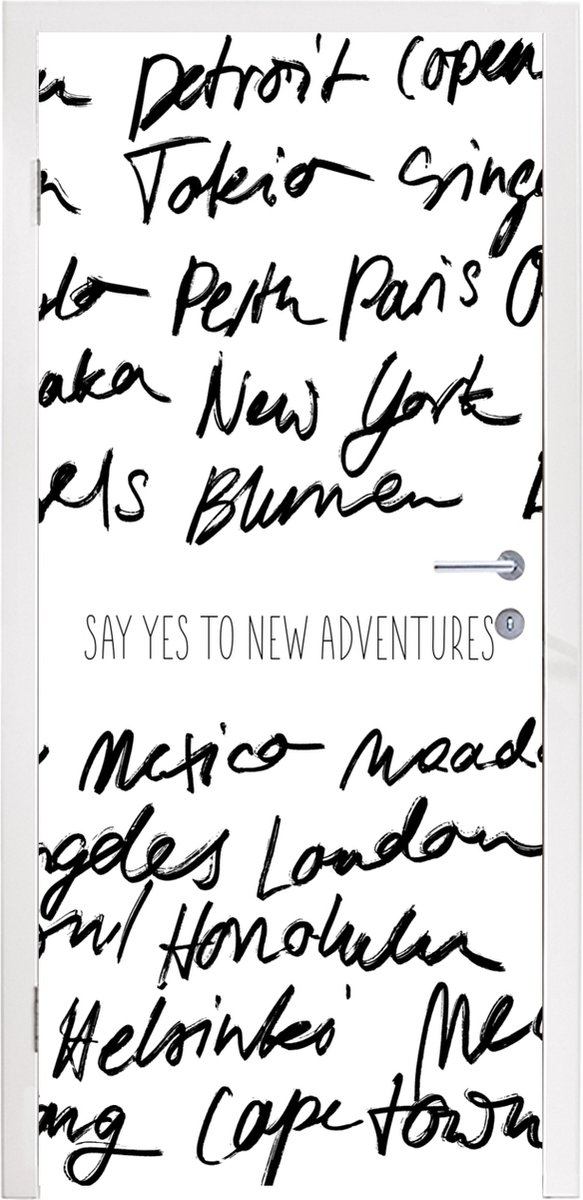 Detroit Copen
Tokio Singa
Perth Paris O
aka New York
els Blumen
SAY YES TO NEW ADVENTURES
Mexico
ngeles London
oul Honolulu
Helsinki Me
ong Cape Town